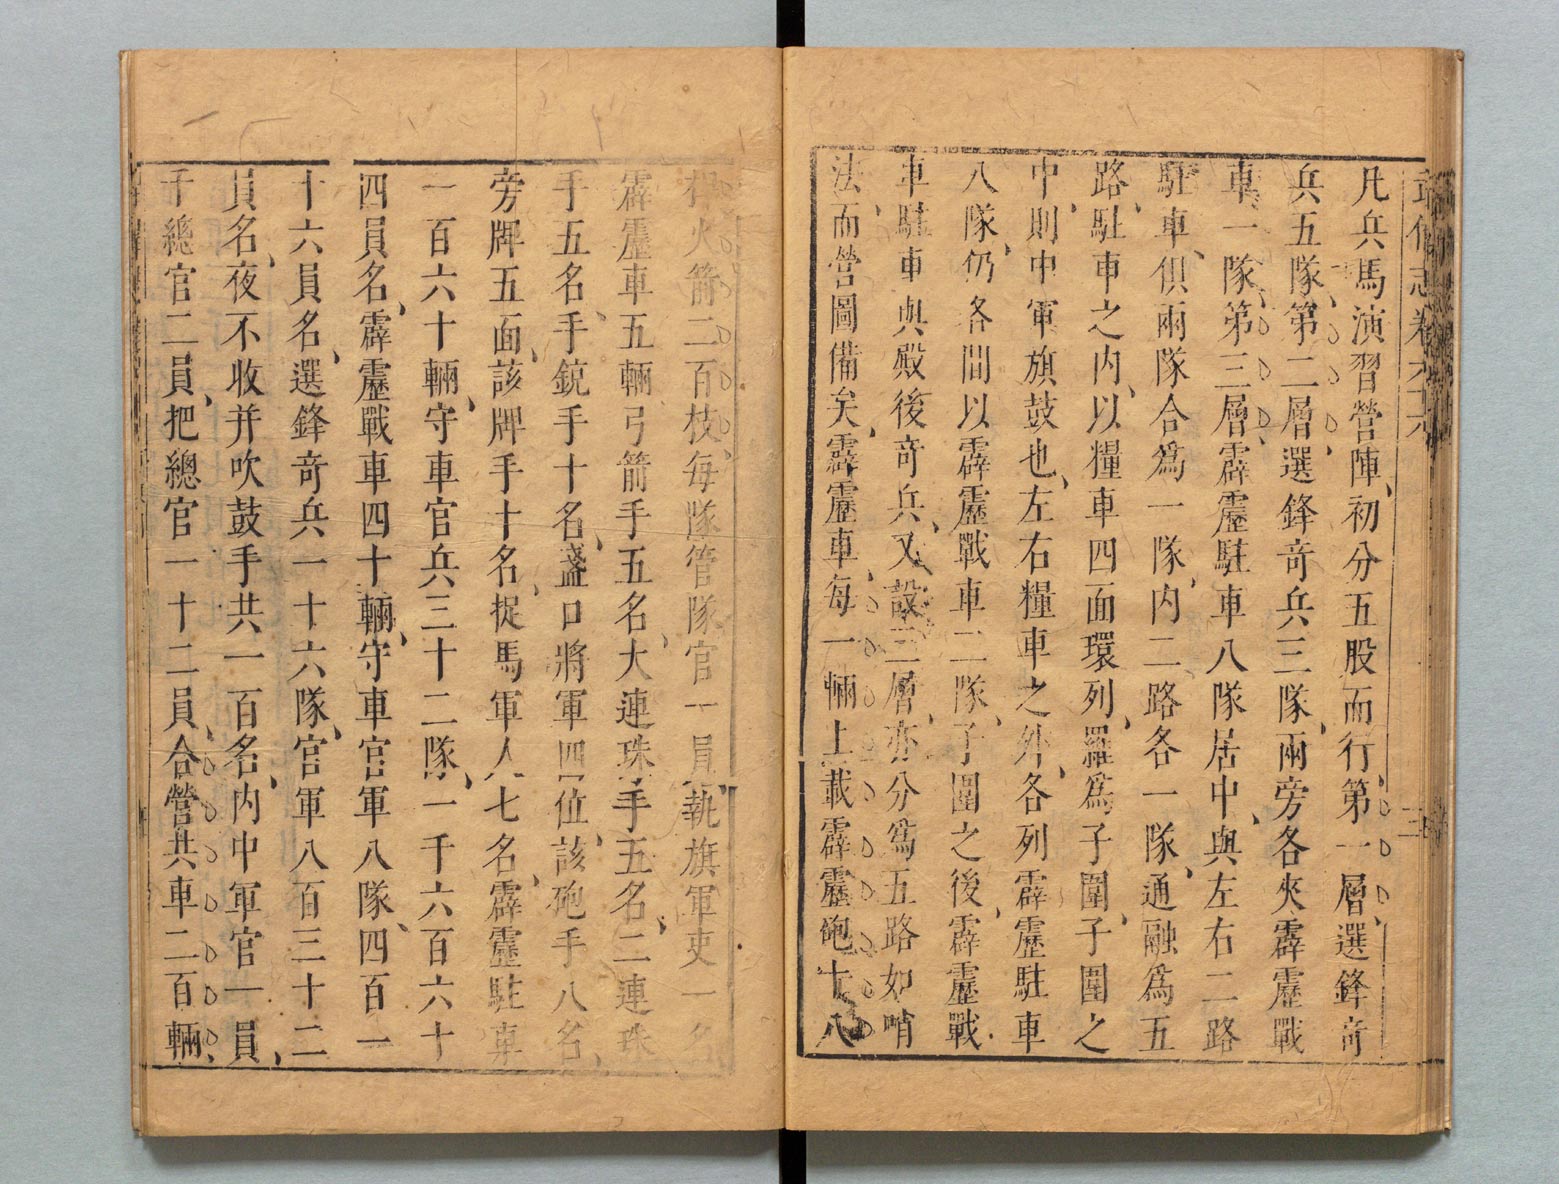 凡兵馬演習營陣、初分五股而行、第一層、選鋒奇
兵五隊、第二層選鋒奇兵三隊、兩旁各夾霹靂戰
車一隊、第三層、霹靂駐車八隊居中、與左右二路
駐車俱兩隊合爲一隊、內二路各一隊、通融爲五
路、駐車之內、以糧車四面環列、羅爲子圍、子圍之
中、則中軍旗鼓也、左右糧車之外、各列霹靂駐車
八隊、仍各間以霹靂戰車二隊、子圍之後、霹靂戰
車駐車與殿後奇兵、又設三層、亦分爲五路如哨
法、而營圖備矣、霹靂車、每一輛上載霹靂砲
火箭二百枝、每隊管隊官一員、執旗軍吏一名
霹靂車五輛、弓箭手五名、大連珠手五名、二連珠
手五名、手銃手十名、盞口將軍四位、該砲手八名、
旁牌五面、該牌手十名、捉馬軍人七名、霹靂駐車
一百六十輛、守車官兵三十二隊、一千六百六十
四員名、霹靂戰車四十輛、守車官軍八隊、四百一
十六員名、選鋒奇兵一十六隊、官軍八百三十二
員名、夜不收并吹鼓手共一百名、內中軍官一員、
千總官二員、把總官一十二員、合營共車二百輛、